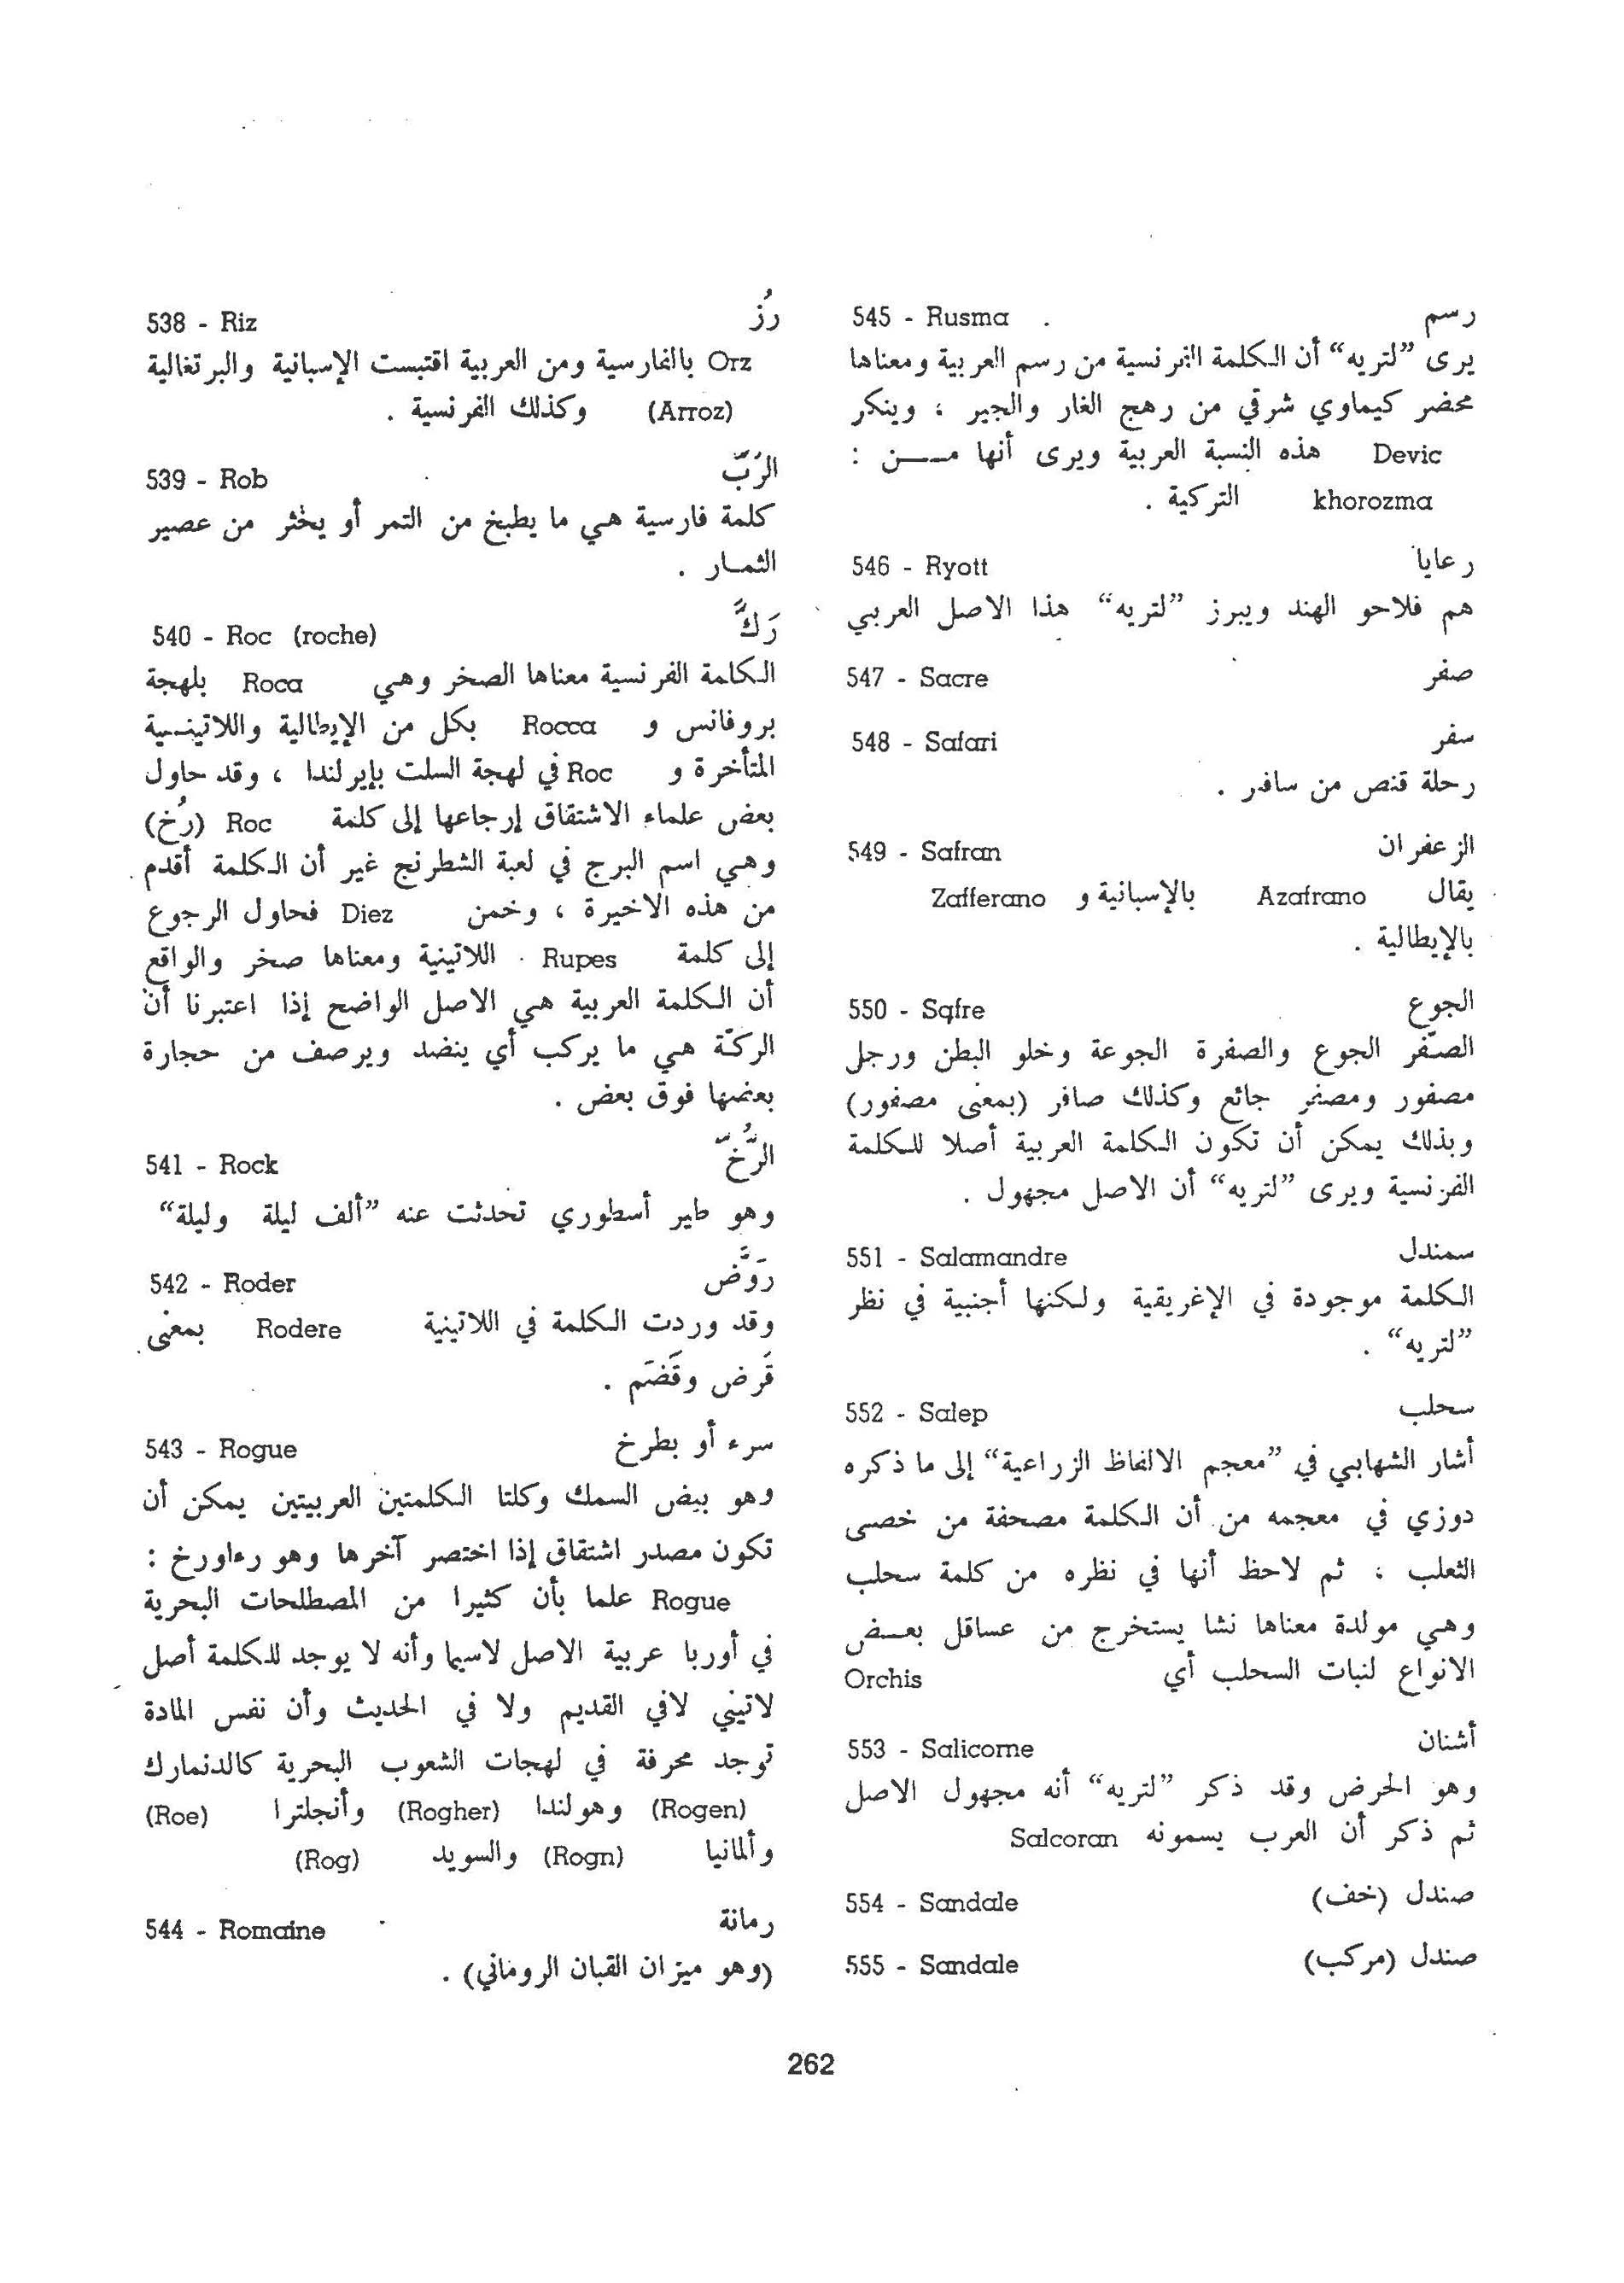 538 - Riz رُز
Orz بالفارسية ومن العربية اقتبست الإسبانية والبرتغالية
(Arroz) وكذلك الفرنسية .
539 - Rob الرُبّ
كلمة فارسية هي ما يطبخ من التمر أو يخثر من عصير
الثمـار .
540 - Roc (roche) رَكَّ
الكلمة الفرنسية معناها الصخر وهي Roca بلهجة
بروفانس و Rocca بكل من الإيطالية واللاتينـية
المتأخرة و Roc في لهجة السلت بإيرلندا ، وقد حاول
بعض علماء الاشتقاق إرجاعها إلى كلمة Roc (رُخ)
وهي اسم البرج في لعبة الشطرنج غير أن الكلمة أقدم
من هذه الاخيرة ، وخمن Diez فحاول الرجوع
إلى كلمة Rupes اللاتينية ومعناها صخر والواقع
أن الكلمة العربية هي الاصل الواضح إذا اعتبرنا أن
الركّة هي ما يركب أي ينضد ويرصف من حجارة
بعضها فوق بعض .
541 - Rock الرُّخّ
وهو طير أسطوري تحدثت عنه ”ألف ليلة وليلة“
542 - Roder رَوَّض
وقد وردت الكلمة في اللاتينية Rodere بمعنى
قَرض وقَضَم .
543 - Rogue سرء أو بطرخ
وهو بيض السمك وكلتا الكلمتين العربيتين يمكن أن
تكون مصدر اشتقاق إذا اختصر آخرها وهو رءاورخ :
Rogue علما بأن كثيرا من المصطلحات البحرية
في أوربا عربية الاصل لاسيما وأنه لا يوجد للكلمة أصل
لاتيني لافي القديم ولا في الحديث وأن نفس المادة
توجد محرفة في لهجات الشعوب البحرية كالدنمارك
(Rogen) وهولندا (Rogher) وأنجلترا (Roe)
وألمانيا (Rogn) والسويد (Rog)
544 - Romaine رمانة
(وهو ميزان القبان الروماني) .
545 - Rusma رسم
يرى ”لتريه“ أن الكلمة الفرنسية من رسم العربية ومعناها
محضر كيماوي شرقي من رهج الغار والجير ، وينكر
Devic هذه النسبة العربية ويرى أنها مـــن :
khorozma التركية .
546 - Ryott رعايا
هم فلاحو الهند ويبرز ”لتريه“ هذا الاصل العربي
547 - Sacre صفر
548 - Safari سفر
رحلة قنص من سافر .
549 - Safran الزعفران
يقال Azafrano بالإسبانية و Zafferano
بالإيطالية .
550 - Sqfre الجوع
الصّفر الجوع والصفرة الجوعة وخلو البطن ورجل
مصفور ومصفر جائع وكذلك صافر (بمعنى مصفور)
وبذلك يمكن أن تكون الكلمة العربية أصلا للكلمة
الفرنسية ويرى ”لتريه“ أن الاصل مجهول .
551 - Salamandre سمندل
الكلمة موجودة في الإغريقية ولكنها أجنبية في نظر
”لتريه“ .
552 - Salep سحلب
أشار الشهابي في ”معجم الالفاظ الزراعية“ إلى ما ذكره
دوزي في معجمه من أن الكلمة مصحفة من خصى
الثعلب ، ثم لاحظ أنها في نظره من كلمة سحلب
وهي مولدة معناها نشا يستخرج من عساقل بعـض
الانواع لنبات السحلب أي Orchis
553 - Salicorne أشنان
وهو الحرض وقد ذكر ”لتريه“ أنه مجهول الاصل
ثم ذكر أن العرب يسمونه Salcoran
554 - Sandale صندل (خف)
555 - Sandale صندل (مركب)
262